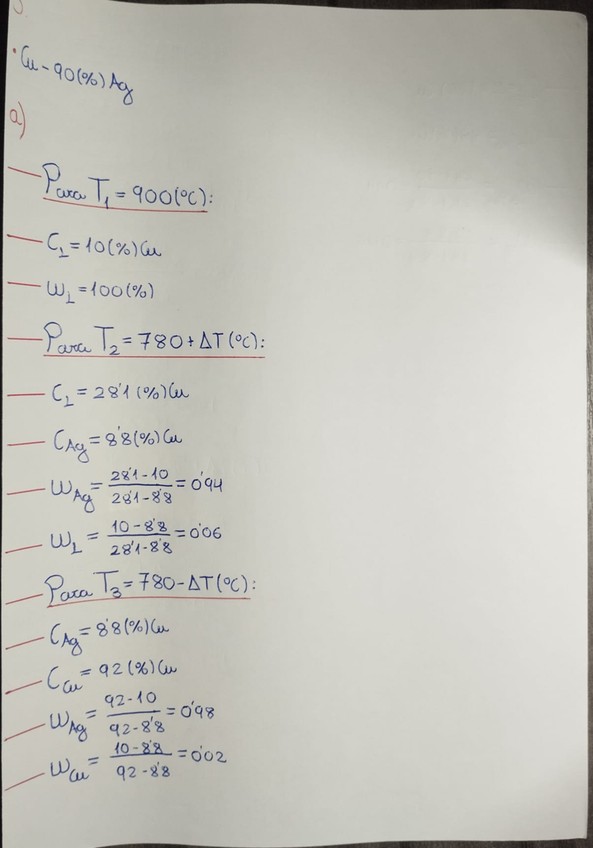 · Cu - 90(%) Ag
a)
Para T₁ = 900(ºC):
C_L = 10(%) Cu
W_L = 100(%)
Para T₂ = 780 + ΔT(ºC):
C_L = 28'1(%) Cu
C_Ag = 8'8(%) Cu
W_Ag = (28'1-10)/(28'1-8'8) = 0'94
W_L = (10-8'8)/(28'1-8'8) = 0'06
Para T₃ = 780 - ΔT(ºC):
C_Ag = 8'8(%) Cu
C_Cu = 92(%) Cu
W_Ag = (92-10)/(92-8'8) = 0'98
W_Cu = (10-8'8)/(92-8'8) = 0'02